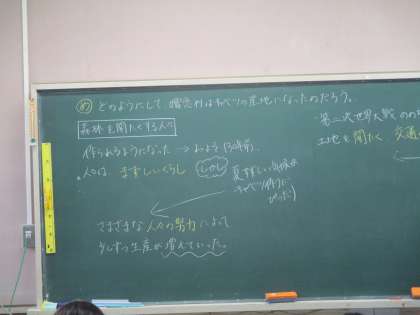 め どのようにして、嬬恋村はキャベツの産地になったのだろう。
森林を開たくする人々
作られるようになった → およそ130年前。
・人々は、まずしいくらし しかし 夏すずしい気候が
キャベツ作りに
ぴったり
さまざまな人々の努力によって
少しずつ生産が増えていった。
・第二次世界大戦のの
土地を開たく 交通